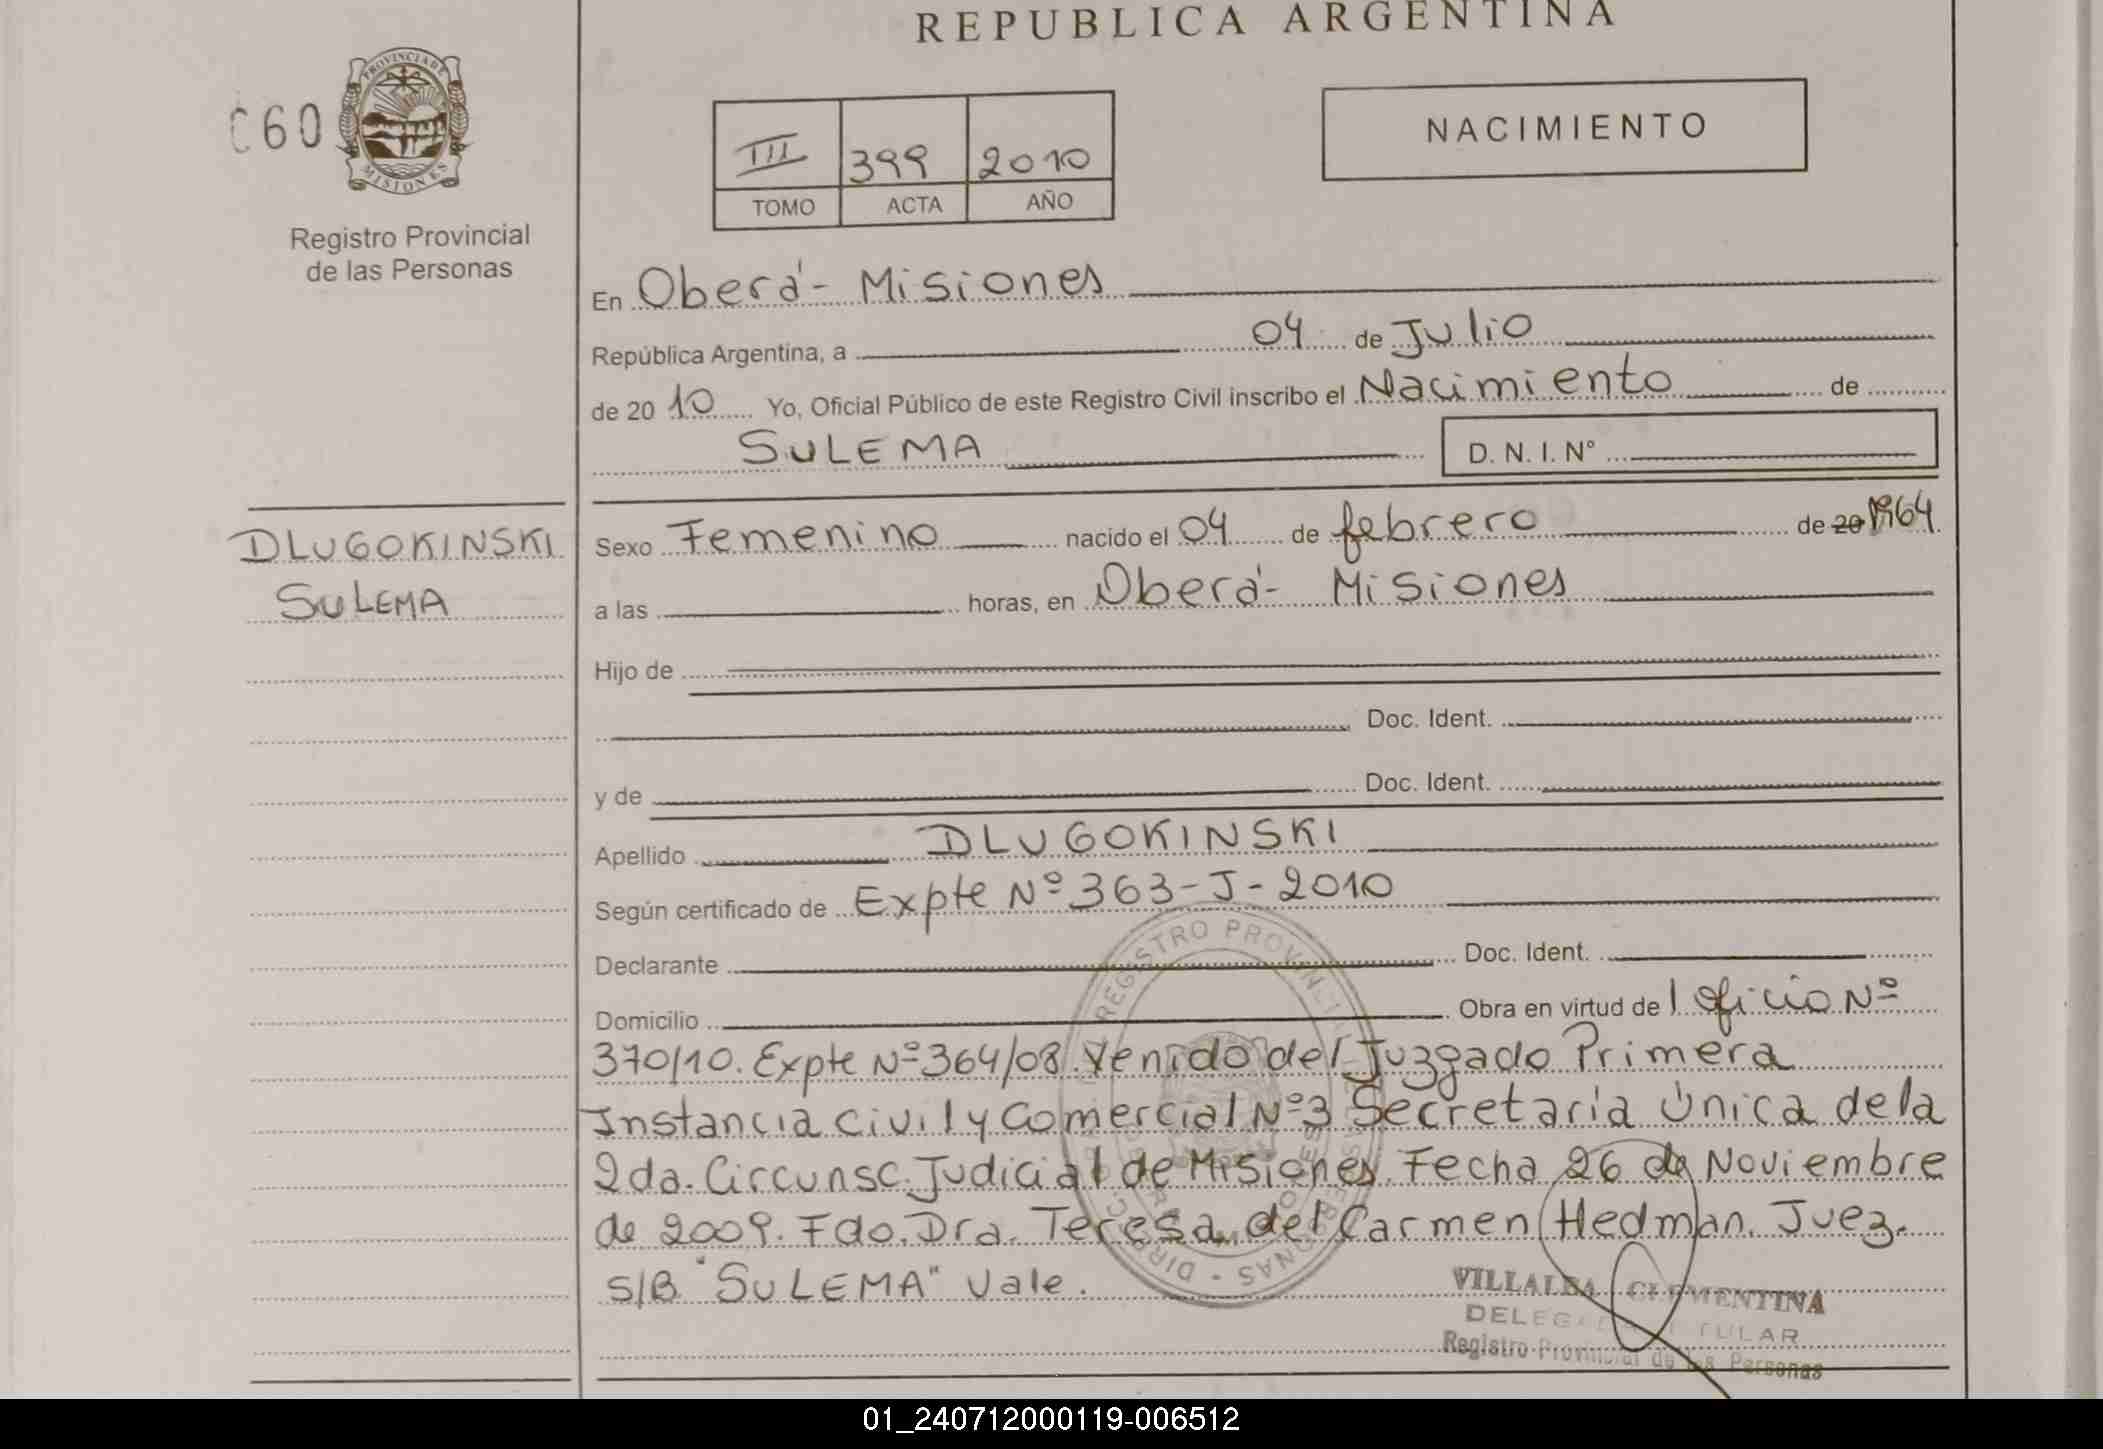 REPUBLICA ARGENTINA
C60
PROVINCIA DE
MISIONES
Registro Provincial
de las Personas
III 399 2010
TOMO ACTA AÑO
NACIMIENTO
En Oberá - Misiones
República Argentina, a 04 de Julio
de 20 10 Yo, Oficial Público de este Registro Civil inscribo el Nacimiento de
SULEMA D. N. I. N°
DLUGOKINSKI
SULEMA
Sexo Femenino nacido el 04 de febrero de 20 1964
a las horas, en Oberá - Misiones
Hijo de
Doc. Ident.
y de Doc. Ident.
Apellido DLUGOKINSKI
Según certificado de Expte Nº 363-J-2010
Declarante Doc. Ident.
Domicilio Obra en virtud de l oficio Nº
370/10. Expte Nº 364/08. Venido del Juzgado Primera
Instancia Civil y Comercial Nº 3 Secretaría Única de la
2da. Circunsc. Judicial de Misiones. Fecha 26 de Noviembre
de 2009. Fdo. Dra. Teresa del Carmen Hedman. Juez.
S/B "SULEMA" Vale.
VILLALBA CLEMENTINA
DELEGADA TITULAR
Registro Provincial de las Personas
01_240712000119-006512